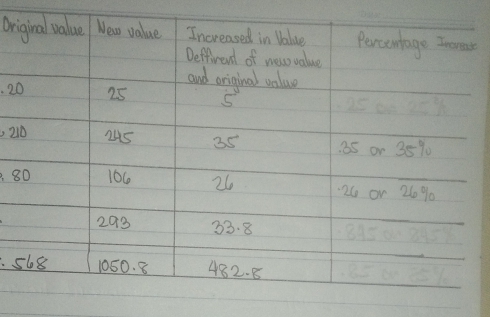 Original value New value Increased in Value Percentage Increase
Deffirent of new value
and original value
. 20 25 5 .25 or 25%
. 210 245 35 .35 or 35%
. 80 106 26 .26 or 26%
. 293 33.8
. 568 1050.8 482.8 .85 or 85%